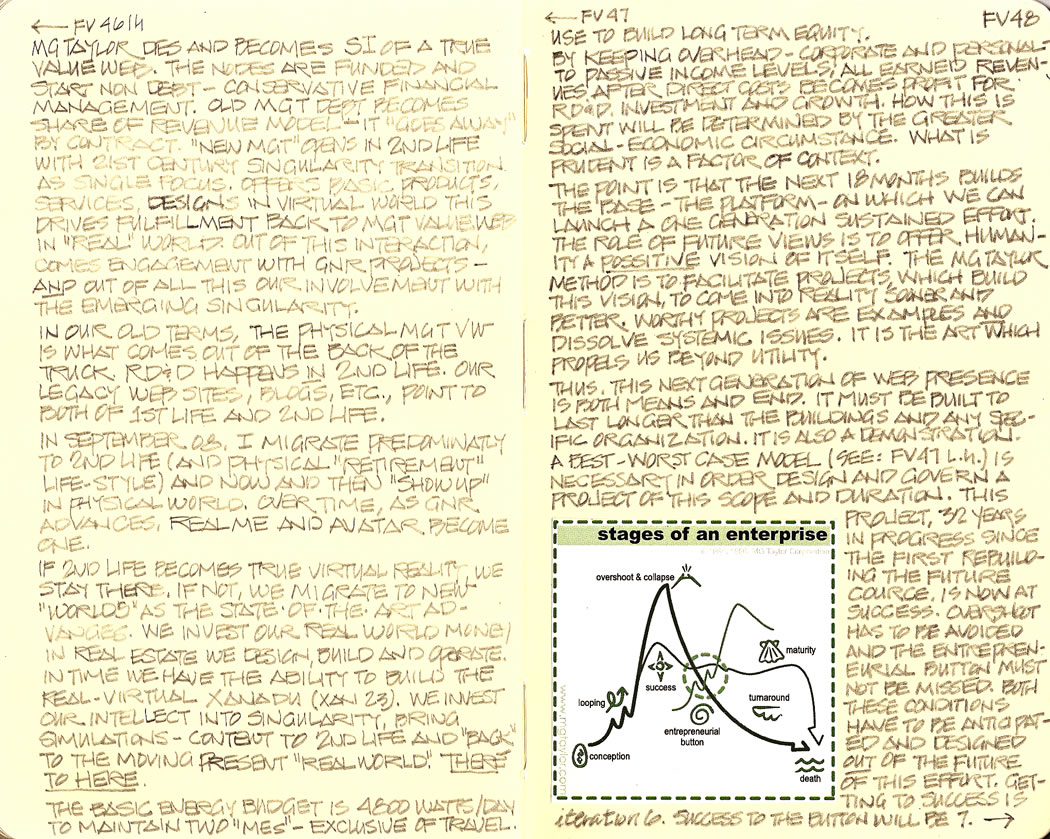 ← FV 46/4
MG TAYLOR DES AND BECOMES SI OF A TRUE
VALUE WEB. THE NODES ARE FUNDED AND
START NON DEBT - CONSERVATIVE FINANCIAL
MANAGEMENT. OLD MGT DEPT BECOMES
SHARE OF REVENUE MODEL - IT "GOES AWAY"
BY CONTRACT. "NEW MGT" OPENS IN 2ND LIFE
WITH 21ST CENTURY SINGULARITY TRANSITION
AS SINGLE FOCUS. OFFERS BASIC PRODUCTS,
SERVICES, DESIGNS IN VIRTUAL WORLD THIS
DRIVES FULFILLMENT BACK TO MGT VALUE WEB
IN "REAL" WORLD. OUT OF THIS INTERACTION,
COMES ENGAGEMENT WITH GNR PROJECTS -
AND OUT OF ALL THIS OUR INVOLVEMENT WITH
THE EMERGING SINGULARITY.
IN OUR OLD TERMS, THE PHYSICAL MGT VW
IS WHAT COMES OUT OF THE BACK OF THE
TRUCK. RD&D HAPPENS IN 2ND LIFE. OUR
LEGACY WEB SITES, BLOGS, ETC., POINT TO
BOTH OF 1ST LIFE AND 2ND LIFE.
IN SEPTEMBER 08, I MIGRATE PREDOMINATLY
TO 2ND LIFE (AND PHYSICAL "RETIREMENT"
LIFE-STYLE) AND NOW AND THEN "SHOW UP"
IN PHYSICAL WORLD. OVER TIME, AS GNR
ADVANCES, REAL ME AND AVATAR BECOME
ONE.
IF 2ND LIFE BECOMES TRUE VIRTUAL REALITY, WE
STAY THERE. IF NOT, WE MIGRATE TO NEW
"WORLDS" AS THE STATE-OF-THE-ART AD-
VANCES. WE INVEST OUR REAL WORLD MONEY
IN REAL ESTATE WE DESIGN, BUILD AND OPERATE.
IN TIME WE HAVE THE ABILITY TO BUILD THE
REAL-VIRTUAL XANADU (XAN 23). WE INVEST
OUR INTELLECT INTO SINGULARITY, BRING
SIMULATIONS - CONTENT TO 2ND LIFE AND "BACK"
TO THE MOVING PRESENT "REAL WORLD." THERE
TO HERE.
THE BASIC ENERGY BUDGET IS 4800 WATTS/DAY
TO MAINTAIN TWO "MES" - EXCLUSIVE OF TRAVEL.
← FV47
FV48
USE TO BUILD LONG TERM EQUITY.
BY KEEPING OVERHEAD - CORPORATE AND PERSONAL -
TO PASSIVE INCOME LEVELS, ALL EARNED REVEN-
UES AFTER DIRECT COSTS BECOMES PROFIT FOR
RD&D, INVESTMENT AND GROWTH. HOW THIS IS
SPENT WILL BE DETERMINED BY THE GREATER
SOCIAL-ECONOMIC CIRCUMSTANCE. WHAT IS
PRUDENT IS A FACTOR OF CONTEXT.
THE POINT IS THAT THE NEXT 18 MONTHS BUILDS
THE BASE - THE PLATFORM - ON WHICH WE CAN
LAUNCH A ONE GENERATION SUSTAINED EFFORT.
THE ROLE OF FUTURE VIEWS IS TO OFFER HUMAN-
ITY A POSSITIVE VISION OF ITSELF. THE MG TAYLOR
METHOD IS TO FACILITATE PROJECTS, WHICH BUILD
THIS VISION, TO COME INTO REALITY SOONER AND
BETTER. WORTHY PROJECTS ARE EXAMPLES AND
DISSOLVE SYSTEMIC ISSUES. IT IS THE ART WHICH
PROPELS US BEYOND UTILITY.
THUS. THIS NEXT GENERATION OF WEB PRESENCE
IS BOTH MEANS AND END. IT MUST BE BUILT TO
LAST LONGER THAN THE BUILDINGS AND ANY SPEC-
IFIC ORGANIZATION. IT IS ALSO A DEMONSTRATION.
A BEST-WORST CASE MODEL (SEE: FV47 L.H.) IS
NECESSARY IN ORDER DESIGN AND GOVERN A
PROJECT OF THIS SCOPE AND DURATION. THIS
PROJECT, 32 YEARS
IN PROGRESS SINCE
THE FIRST REBUILD-
ING THE FUTURE
COURCE, IS NOW AT
SUCCESS. OVERSHOT
HAS TO BE AVOIDED
AND THE ENTREPREN-
EURIAL BUTTON MUST
NOT BE MISSED. BOTH
THESE CONDITIONS
HAVE TO BE ANTICIPAT-
ED AND DESIGNED
OUT OF THE FUTURE
OF THIS EFFORT. GET-
TING TO SUCCESS IS
iteration 6. SUCCESS TO THE BUTTON WILL BE 7. →
stages of an enterprise
MG Taylor Corporation
overshoot & collapse
maturity
success
looping
turnaround
entrepreneurial
button
conception
death
www.mgtaylor.com